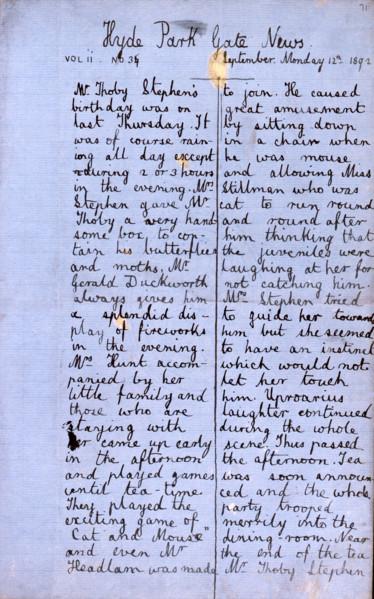 71
Hyde Park Gate News.
VOL II. NO 35 September. Monday 12th 1892
Mr Thoby Stephen's
birthday was on
last Thursday. It
was of course rain-
ing all day except
during 2 or 3 hours
in the evening. Mrs
Stephen gave Mr
Thoby a very hand
some box to con-
tain his butterflies
and moths. Mr
Gerald Duckworth
always gives him
a splendid dis-
play of fireworks
in the evening.
Mrs Hunt accom-
panied by her
little family and
those who are
staying with
her came up early
in the afternoon
and played games
until tea-time.
They played the
exciting game of
"Cat and Mouse"
and even Mr
Headlam was made
to join. He caused
great amusement
by sitting down
in a chair when
he was mouse
and allowing Miss
Stillman who was
cat to run round
and round after
him thinking that
the juveniles were
laughing at her for
not catching him.
Mrs Stephen tried
to guide her towards
him but she seemed
to have an instinct
which would not
let her touch
him. Uproarius
laughter continued
during the whole
scene. Thus passed
the afternoon. Tea
was soon announ-
ced and the whole
party trooped
merrily into the
dining-room. Near
the end of the tea
Mr Thoby Stephen